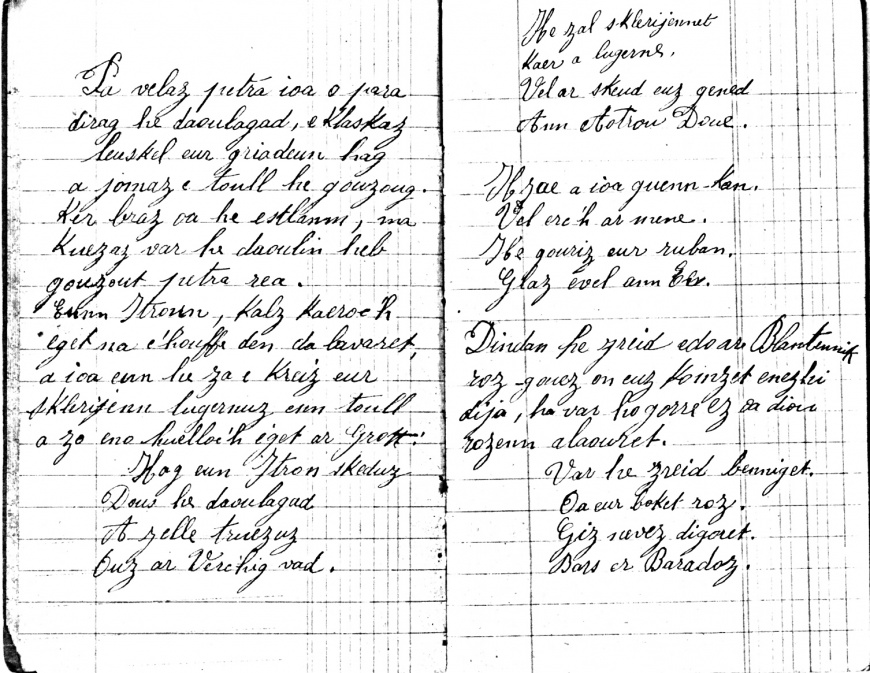 Pa velaz petra ioa o para
dirag he daoulagad, e klaskaz
leuskel eur griadenn hag
a jomaz e toull he gouzoug.
Ker braz oa he estlamm, ma
Kuezaz var he daoulin heb
gouzout petra rea.
Eunn Itroun, kalz kaeroc'h
eget na c'houffe den da lavaret,
a ioa enn he za e kreiz eur
sklerijenn lugernuz enn toull
a zo eno huelloc'h eget ar Grott:
Hag eun Itron skeduz
Dous he daoulagad
A zelle truezuz
Ouz ar Verc'hig vad.
He zal sklerijennet
kaer a lugerne,
Vel ar skeud euz gened
Ann Aotrou Doue.
He zae a ioa guenn-kan,
Vel erc'h ar mene.
He gouriz eur ruban,
Glaz evel ann Env.
Dindan he zreid edo ar Blantennik
roz-gouez on euz komzet anezhi
dija, ha var ho gorre ez oa diou
rozenn alaouret.
Var he zreid benniget.
Oa eur boket roz.
Giz nevez digoret.
Bars er Baradoz.